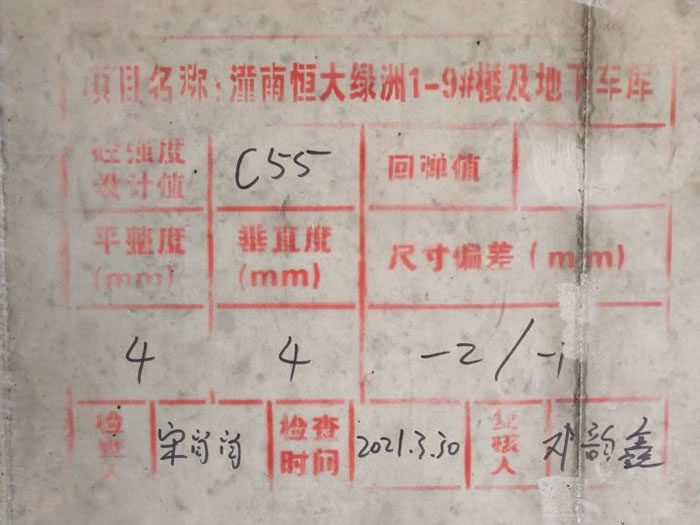 项目名称:潼南恒大绿洲1-9#楼及地下车库
砼强度设计值 C55 回弹值
平整度(mm) 垂直度(mm) 尺寸偏差(mm)
4 4 -2/-1
检查人 宋肖肖 检查时间 2021.3.30 复核人 邓韵鑫